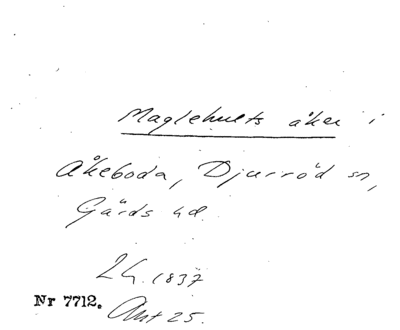 Maglehults åker i
Åkeboda, Djurröd sn,
Gärds hd.
LH. 1837
Nr 7712. Akt 25.